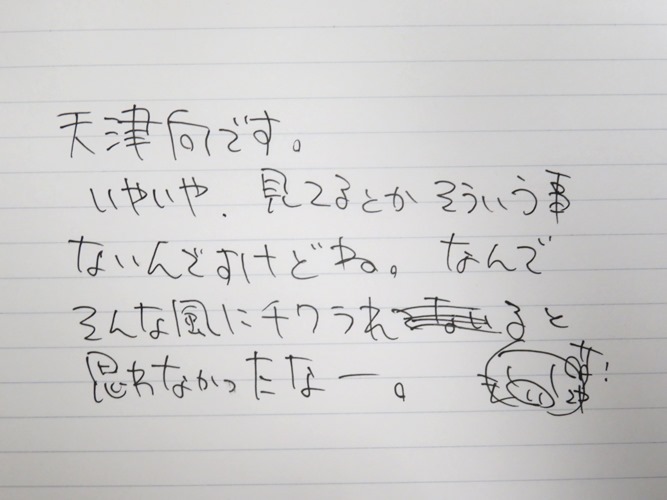 天津向です。
いやいや、見てるとかそういう事
ないんですけどね。なんで
そんな風にチワうれると
思わなかったなー。